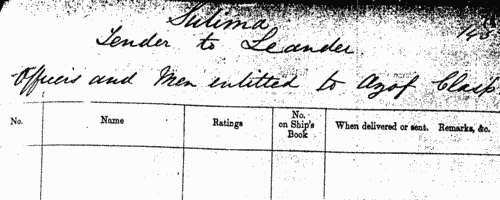 Sulima
Tender to Leander
Officers and Men entitled to Azof Clasp
No. Name Ratings No. on Ship's Book When delivered or sent. Remarks, &c.